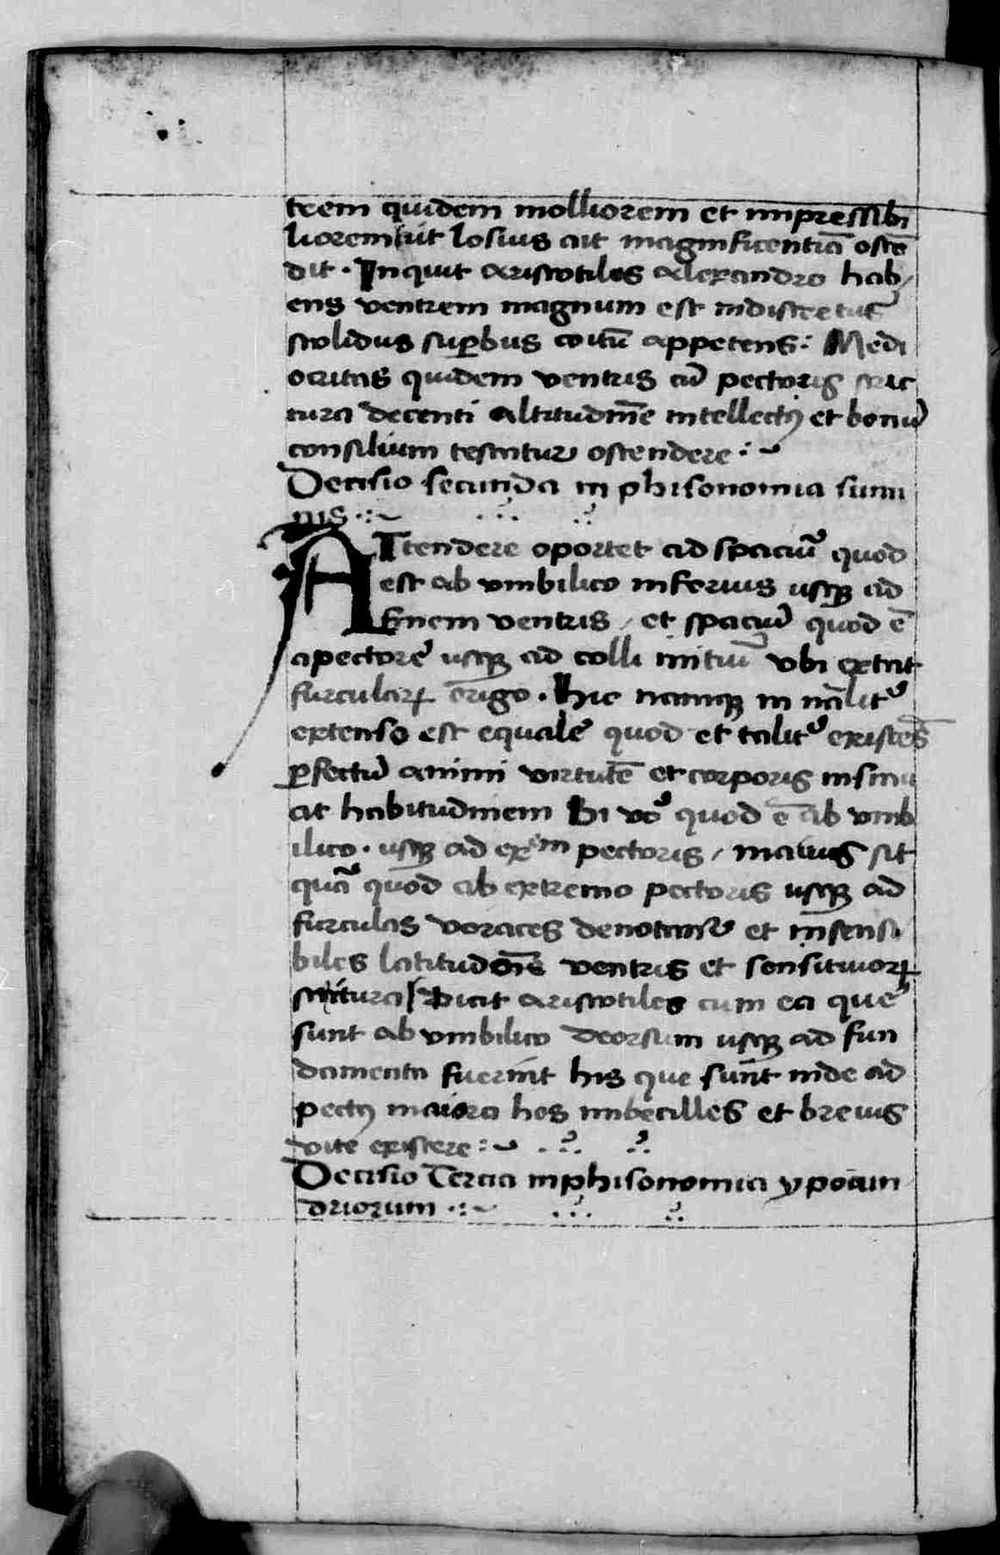 trem quidem molliorem et impressibi
liorem ut losius ait magnificentiã ostẽ
dit . Inquit aristotiles alexandro hab/
ens ventrem magnum est indiscretus
stolidus suꝑbus coitũ appetens : Medi
ocritas quidem ventris cũ pectoris stric
tura decenti altitudinẽ intellectꝰ et bonũ
consilium testatur ostendere :~
Decisio secunda in phisonomia sumi
nis :~
ATtendere oportet ad spaciũ quod
est ab vmbilico inferius usqꝫ ad
finem ventris / et spaciũ quod ẽ
a pectore usqꝫ ad colli initiũ vbi extat
furcularꝝ origo . Hic namqꝫ in nãlitꝰ
extenso est equale quod et talitꝰ existẽs
ꝑfectũ animi virtutẽ et corporis insinu
at habitudinem Si vo quod ẽ ab vmb
ilico . usqꝫ ad exm pectoris / maius sit
quã quod ab extremo pectoris usqꝫ ad
furculas voraces denotant et insensi
biles latitudoẽ ventris et sensitiuorꝝ
strictura Dicit aristotiles cum ea que
sunt ab vmbilico deorsum usqꝫ ad fun
damenta fuerint his que sunt inde ad
pectꝰ maiora hos imbecilles et breuis
vite existere :~
Decisio Tercia in phisonomia ypocun
driorum :~